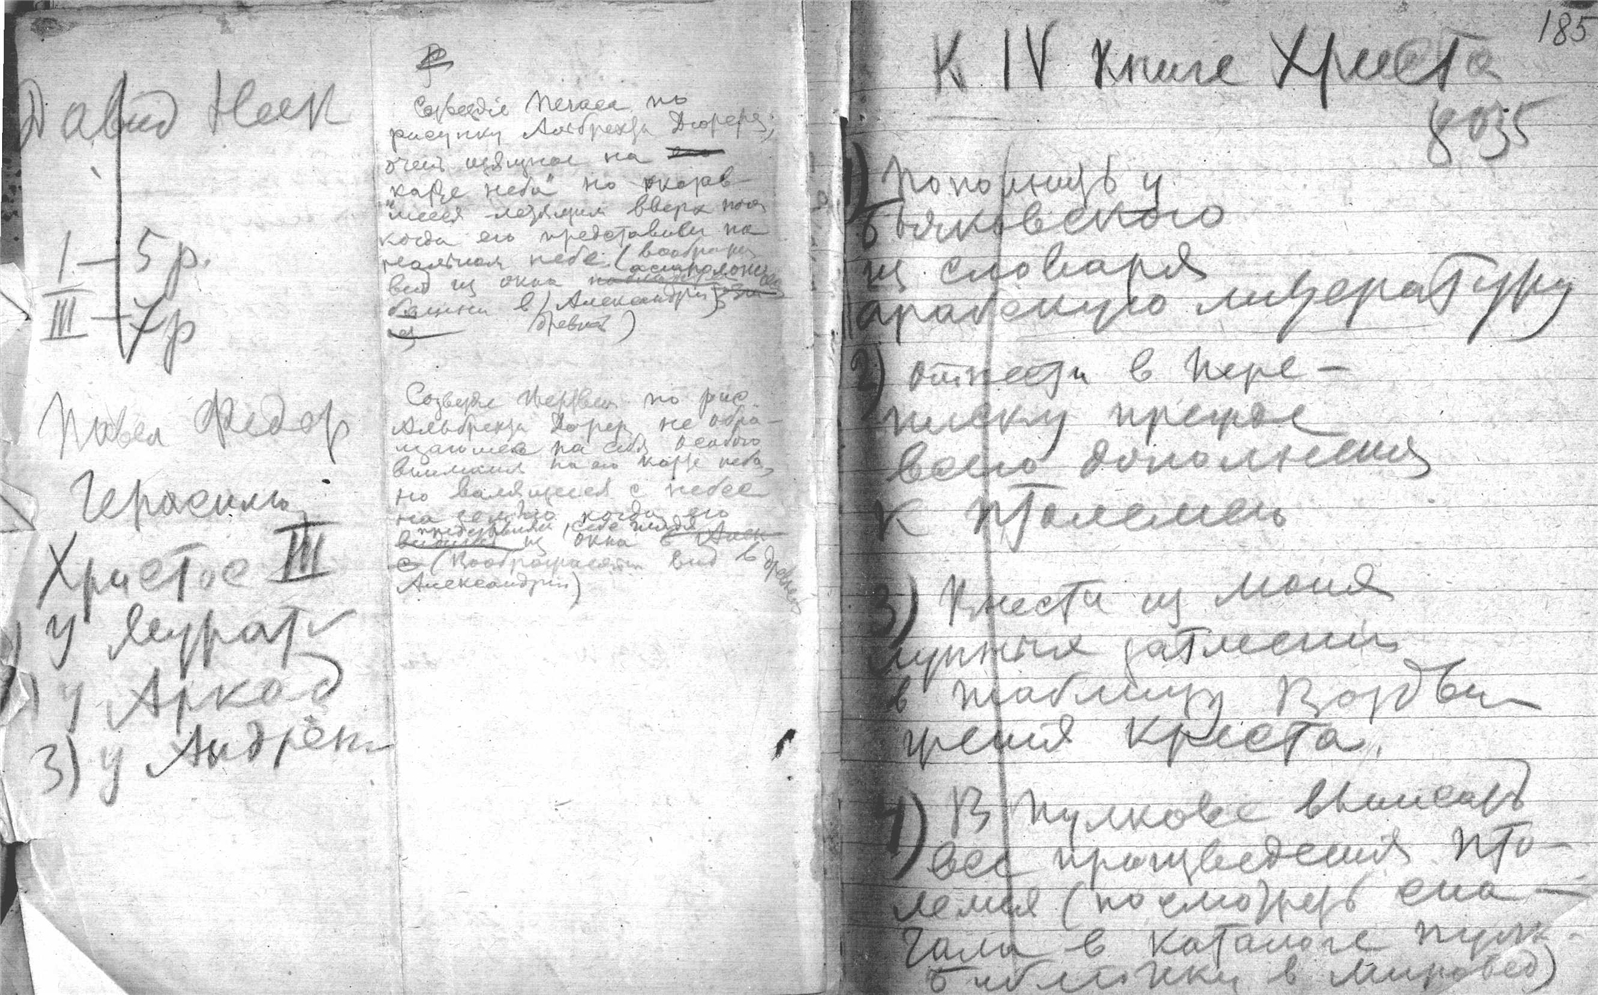 Давид
I – 5 р.
III – 7 р
Павел Федор
Герасим
Христос III
у Мурат
у Аркад
3) у Андрен
Созвездие Пегаса по
рисунку Альбрехта Дюрера,
очень изящное на
"карте неба" но оказав-
шееся летящим вверх ногами
когда его представили на
реальном небе (вообража
вид из окна астролога
башни в Александрии
древней)
Созвездие по рис
Альбрехта Дюрера не обра-
щающее на себя особого
внимания на его карте неба,
но валящееся с небес
на землю когда его
представили себе
из окна в
(Воображаемый вид в древней
Александрии)
185
К IV книге Христа
8035
1) Пополнить у
из словаря
арабскую литературу
2) отнести в Пере-
писку прежде
всего дополнения
к Птолемею
3) Внести из моих
лунных затмений
в таблицу Воздви-
жения Креста.
4) В Пулкове выписать
все произведения Пто-
лемея (посмотреть сна-
чала в каталоге Пулк.
библиотеки в Мировед)